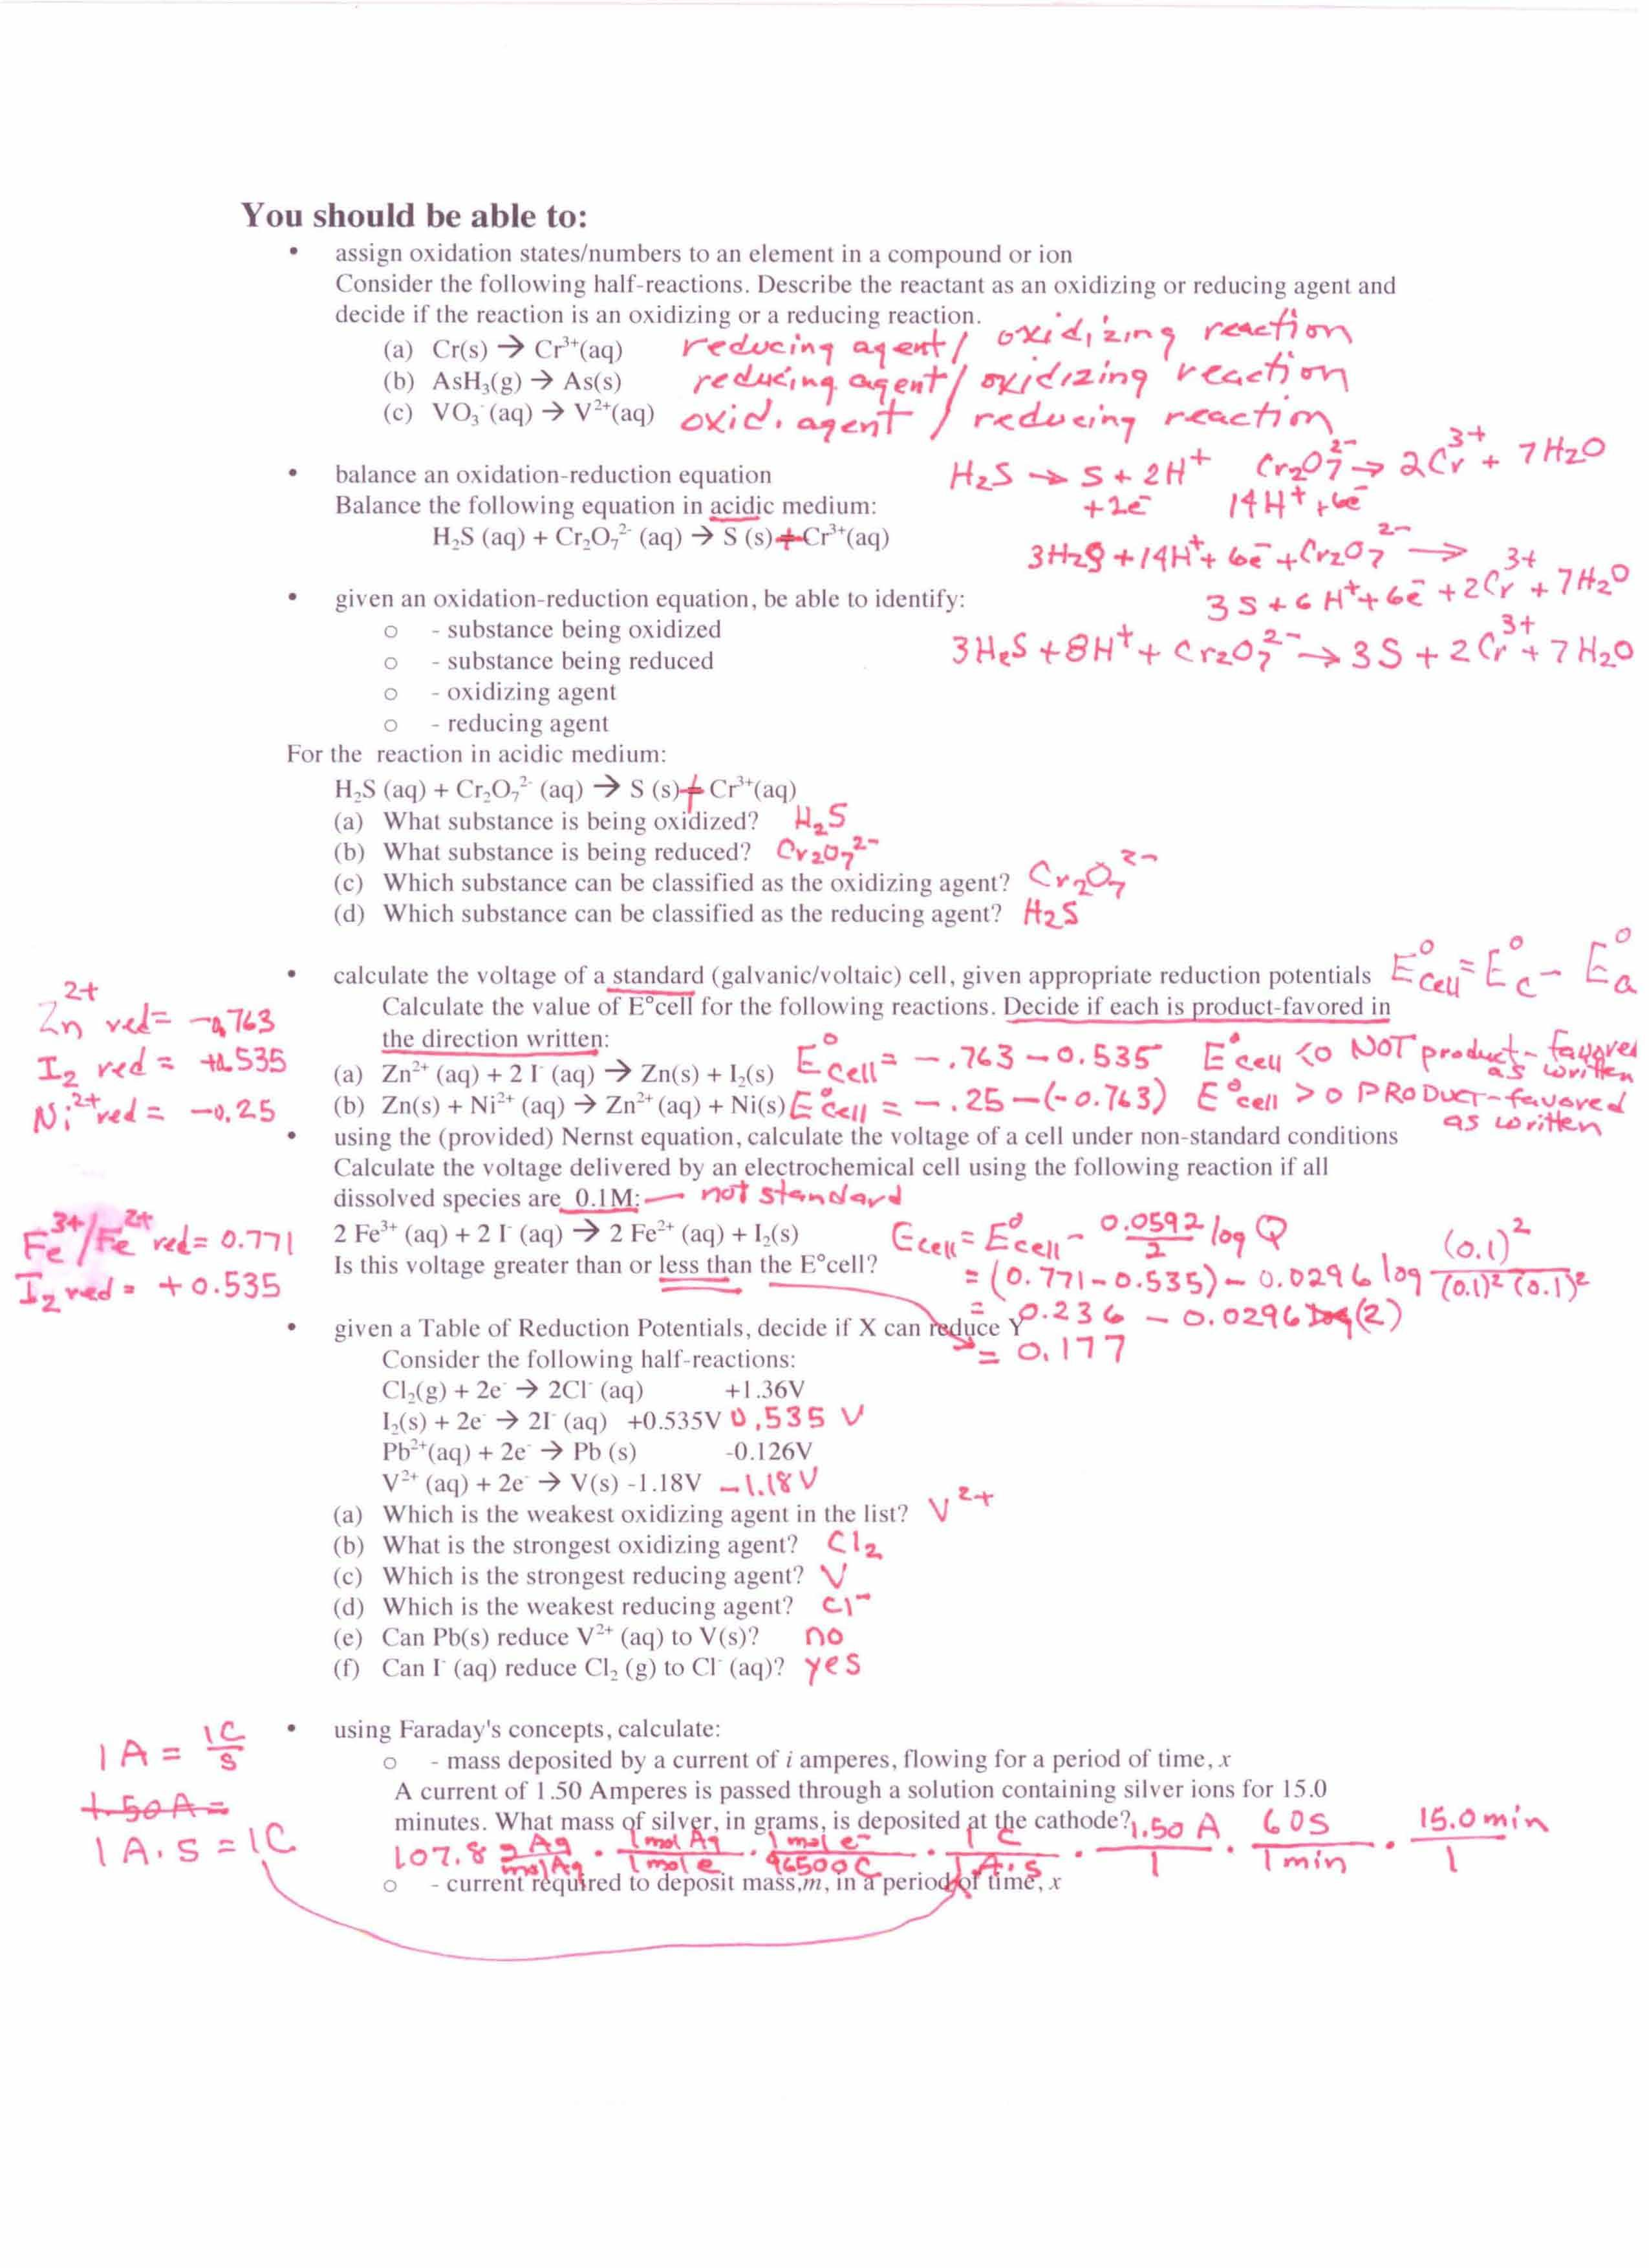 You should be able to:
• assign oxidation states/numbers to an element in a compound or ion
Consider the following half-reactions. Describe the reactant as an oxidizing or reducing agent and
decide if the reaction is an oxidizing or a reducing reaction.
(a) Cr(s) → Cr³⁺(aq) reducing agent/ oxidizing reaction
(b) AsH₃(g) → As(s) reducing agent/ oxidizing reaction
(c) VO₃⁻ (aq) → V²⁺(aq) oxid. agent / reducing reaction
• balance an oxidation-reduction equation
H₂S → S + 2H⁺ Cr₂O₇²⁻ → 2Cr³⁺ + 7H₂O
Balance the following equation in acidic medium:
+2e⁻ 14H⁺ + 6e⁻
H₂S (aq) + Cr₂O₇²⁻ (aq) → S (s) + Cr³⁺(aq)
3H₂S + 14H⁺ + 6e⁻ + Cr₂O₇²⁻ →
3S + 6H⁺ + 6e⁻ + 2Cr³⁺ + 7H₂O
• given an oxidation-reduction equation, be able to identify:
○ - substance being oxidized
3H₂S + 8H⁺ + Cr₂O₇²⁻ → 3S + 2Cr³⁺ + 7H₂O
○ - substance being reduced
○ - oxidizing agent
○ - reducing agent
For the reaction in acidic medium:
H₂S (aq) + Cr₂O₇²⁻ (aq) → S (s) + Cr³⁺(aq)
(a) What substance is being oxidized? H₂S
(b) What substance is being reduced? Cr₂O₇²⁻
(c) Which substance can be classified as the oxidizing agent? Cr₂O₇²⁻
(d) Which substance can be classified as the reducing agent? H₂S
• calculate the voltage of a standard (galvanic/voltaic) cell, given appropriate reduction potentials E°cell = E°c - E°a
Calculate the value of E°cell for the following reactions. Decide if each is product-favored in
the direction written:
Zn²⁺ red = -0.763
I₂ red = +0.535
Ni²⁺ red = -0.25
(a) Zn²⁺ (aq) + 2 I⁻ (aq) → Zn(s) + I₂(s) E°cell = -.763 - 0.535 E°cell < 0 NOT product-favored
as written
(b) Zn(s) + Ni²⁺ (aq) → Zn²⁺ (aq) + Ni(s) E°cell = -.25 - (-0.763) E°cell > 0 PRODUCT-favored
as written
• using the (provided) Nernst equation, calculate the voltage of a cell under non-standard conditions
Calculate the voltage delivered by an electrochemical cell using the following reaction if all
dissolved species are 0.1M: — not standard
Fe³⁺/Fe²⁺ red = 0.771
I₂ red = +0.535
2 Fe³⁺ (aq) + 2 I⁻ (aq) → 2 Fe²⁺ (aq) + I₂(s) Ecell = E°cell - 0.0592/2 log Q
Is this voltage greater than or less than the E°cell? = (0.771 - 0.535) - 0.0296 log (0.1)²/(0.1)²(0.1)²
= 0.236 - 0.0296 log (2)
• given a Table of Reduction Potentials, decide if X can reduce Y
= 0.177
Consider the following half-reactions:
Cl₂(g) + 2e⁻ → 2Cl⁻ (aq) +1.36V
I₂(s) + 2e⁻ → 2I⁻ (aq) +0.535V 0.535 V
Pb²⁺(aq) + 2e⁻ → Pb (s) -0.126V
V²⁺ (aq) + 2e⁻ → V(s) -1.18V -1.18V
(a) Which is the weakest oxidizing agent in the list? V²⁺
(b) What is the strongest oxidizing agent? Cl₂
(c) Which is the strongest reducing agent? V
(d) Which is the weakest reducing agent? Cl⁻
(e) Can Pb(s) reduce V²⁺ (aq) to V(s)? no
(f) Can I⁻ (aq) reduce Cl₂ (g) to Cl⁻ (aq)? yes
1 A = 1C/s
1.50 A =
1 A.s = 1C
• using Faraday's concepts, calculate:
○ - mass deposited by a current of i amperes, flowing for a period of time, x
A current of 1.50 Amperes is passed through a solution containing silver ions for 15.0
minutes. What mass of silver, in grams, is deposited at the cathode?
107.8 g Ag/mol Ag · 1 mol Ag/1 mol e⁻ · 1 mol e⁻/96500 C · 1 C/1 A.s · 1.50 A/1 · 60s/1 min · 15.0 min/1
○ - current required to deposit mass,m, in a period of time, x